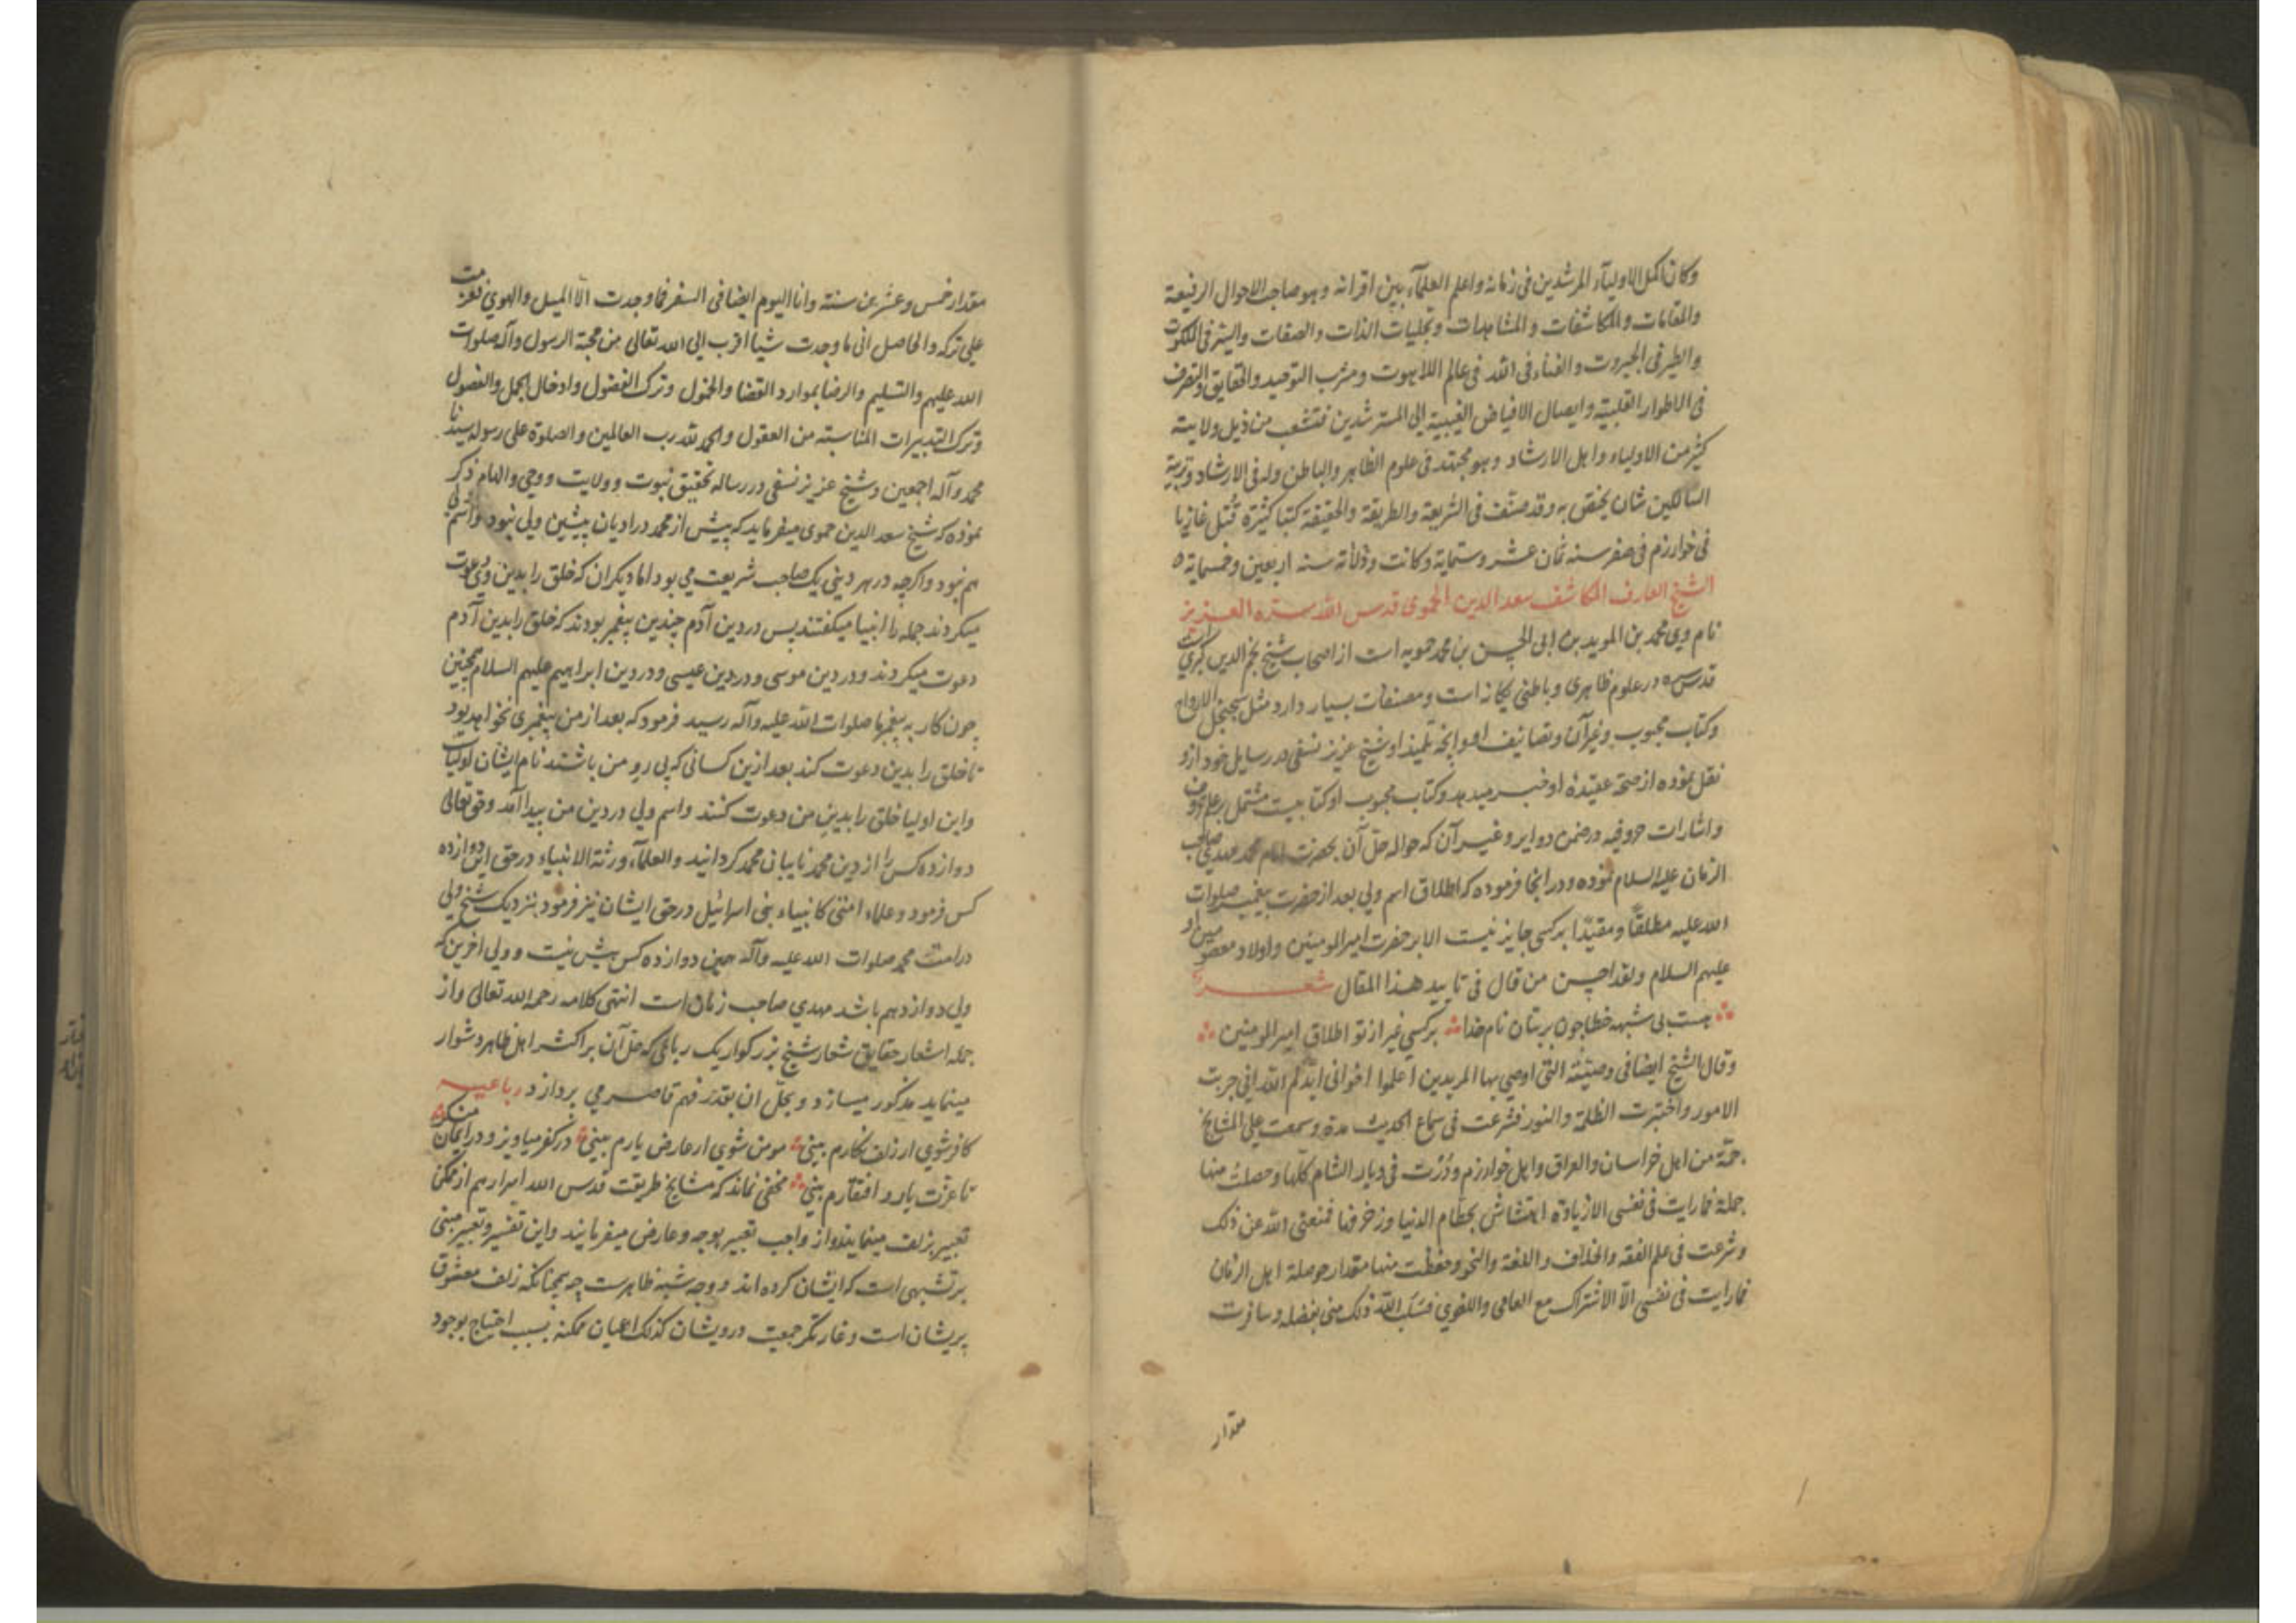 وكان اكمل الاولياء المرشدين فى زمانه واعلم العلماء بين اقرانه وهو صاحب الاحوال الرفيعة
والمقامات والمكاشفات والمشاهدات وتجليات الذات والصفات والسير فى الملكوت
والطير فى الجبروت والفناء فى الله فى عالم اللاهوت ومشرب التوحيد والحقايق والتصرف
فى الاطوار القلبية وايصال الافياض الغيبية الى المسترشدين فتشعب من ذيل ولايته
كثير من الاولياء واهل الارشاد وهو مجتهد فى علوم الظاهر والباطن وله فى الارشاد وتربية
السالكين شان يختص به وقد صنف فى الشريعة والطريقة والحقيقة كتبا كثيرة قُتل غازيا
فى خوارزم فى صفر سنه ثمان عشر وستماية وكانت ولادته سنه اربعين وخمسماية ه
الشيخ العارف المكاشف سعد الدين الحموى قدس الله سره العزيز
نام وى محمد بن المويد بن ابى الحسن بن محمد حمويه است از اصحاب شيخ نجم الدين كبرى است
قدس سره در علوم ظاهرى و باطنى يكانه است ومصنفات بسيار دارد مثل سجنجل الارواح
وكتاب محبوب وغير آن وتصانيف او وانچه تلميذ او شيخ عزيز نسفى در رسايل خود از و
نقل نموده از صحة عقيده او خبر ميدهد وكتاب محبوب او كتابيست مشتمل بر علم حروف
واشارات حروفيه در ضمن دواير وغير آن كه حواله حل آن بحضرت امام محمد مهدى صاحب
الزمان عليه السلام نموده ودر انجا فرموده كه اطلاق اسم ولى بعد از حضرت پيغمبر صلوات
الله عليه مطلقاً ومقيداً بر كسى جايز نيست الا بر حضرت امير المومنين واولاد معصومين او
عليهم السلام ولقد احسن من قال فى تاييد هذا المقال شعر
هست بى شبهه خطا چون بر بتان نام خدا بر كسى غير از تو اطلاق امير المومنين
وقال الشيخ ايضا فى وصيته التى اوصى بها المريدين اعلموا اخوانى ايدكم الله انى جربت
الامور واختبرت الظلمة والنور فشرعت فى سماع الحديث مدة وسمعت على المشايخ
جمّة من اهل خراسان والعراق واهل خوارزم ودُرْت فى ديار الشام كلها وحصلت منها
جملة فما رايت فى نفسى الا زيادة انتشاش بحطام الدنيا وزخرفها فمنعنى الله عن ذلك
وشرعت فى علم الفقه والخلاف واللغة والنحو وحفظت منها مقدار حوصلة اهل الزمان
فما رايت فى نفسى الا الاشتراك مع العامى واللغوى فسلب الله ذلك منى بفضله وسافرت
مقدار
مقدار خمس وعشرين سنة وانا اليوم ايضا فى السفر فما وجدت الا الميل والهوى فعزمت
على تركه والحاصل انى ما وجدت شيأ اقرب الى الله تعالى من محبة الرسول وآله صلوات
الله عليهم والتسليم والرضا بموارد القضا والخمول وترك الفضول وادخال الجمل والفصول
وترك التدبيرات المناسبته من العقول والحمد لله رب العالمين والصلوة على رسوله سيدنا
محمد وآله اجمعين وشيخ عزيز نسفى در رساله تحقيق نبوت وولايت ووحى والهام ذكر
نموده كه شيخ سعد الدين حموى ميفرمايد كه پيش از محمد در اديان پيشين ولى نبود واسم ولى
هم نبود واكرچه در هر دينى يك صاحب شريعت مى بود اما ديكران كه خلق را بدين وى دعوت
ميكردند جمله را انبيا ميكفتند پس در دين آدم چندين پيغمبر بودند كه خلق را بدين آدم
دعوت ميكردند ودر دين موسى ودر دين عيسى ودر دين ابراهيم عليهم السلام همچنين
چون كار به پيغمبر ما صلوات الله عليه وآله رسيد فرمود كه بعد از من پيغمبرى نخواهد بود
تا خلق را بدين دعوت كند بعد ازين كسانى كه پى رو من باشند نام ايشان اولياست
واين اوليا خلق را بدين من دعوت كنند واسم ولى در دين من پيدا آمد وحق تعالى
دوازده كس را از دين محمد نايبان محمد كردانيد والعلماء ورثة الانبياء در حق اين دوازده
كس فرمود وعلماء امتى كانبياء بنى اسرائيل در حق ايشان نيز فرمود بنزديك شيخ ولى
در امت محمد صلوات الله عليه وآله همين دوازده كس بيش نيست وولى اخرين كه
ولى دوازدهم باشد مهدى صاحب زمان است انتهى كلامه رحمه الله تعالى واز
جمله اشعار حقايق شعار شيخ بزركوار يك رباعى كه حل آن بر اكثر اهل ظاهر دشوار
مينمايد مذكور ميسازد وبحل ان بقدر فهم قاصر مى پردازد رباعيه
كافر شوى ار زلف نكارم بينى مومن شوى ار عارض يارم بينى در كفر مياويز ودر ايمان منكر
تا عزت يار و افتقارم بينى مخفى نماند كه مشايخ طريقت قدس الله اسرارهم از ممكن
تعبير بزلف مينمايند واز واجب تعبير بوجه وعارض ميفرمايند واين تفسير وتعبير مبنى
بر تشبيهى است كه ايشان كرده اند ووجه شبه ظاهرست چه همچنانكه زلف معشوق
پريشان است وغارتكر جمعيت درويشان كذلك اعيان ممكنه بسبب احتياج بوجود